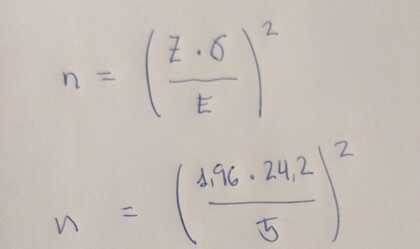 n = (Z · σ / E)²
n = (1,96 · 24,2 / 5)²